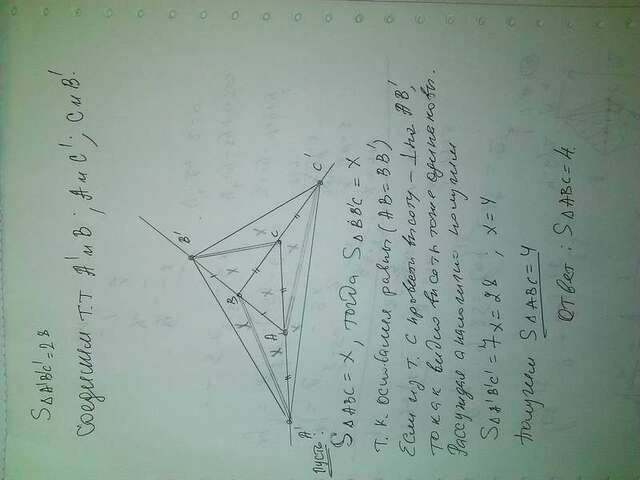 S△A'B'C'=28
Соединим т.т A' и B ; A и C' ; C и B'.
B'
C'
B
C
A
A'
x
x
x
x
x
x
x
Пусть:
S△ABC = x, тогда S△BB'C = x
т.к основания равны (AB=BB')
Если из т. C провести высоту – ⊥ на AB',
то как видно высоты тоже одинаковы.
Рассуждая аналогично получим
S△A'B'C' = 7x = 28 , x=4
Получим S△ABC=4
Ответ: S△ABC=4.